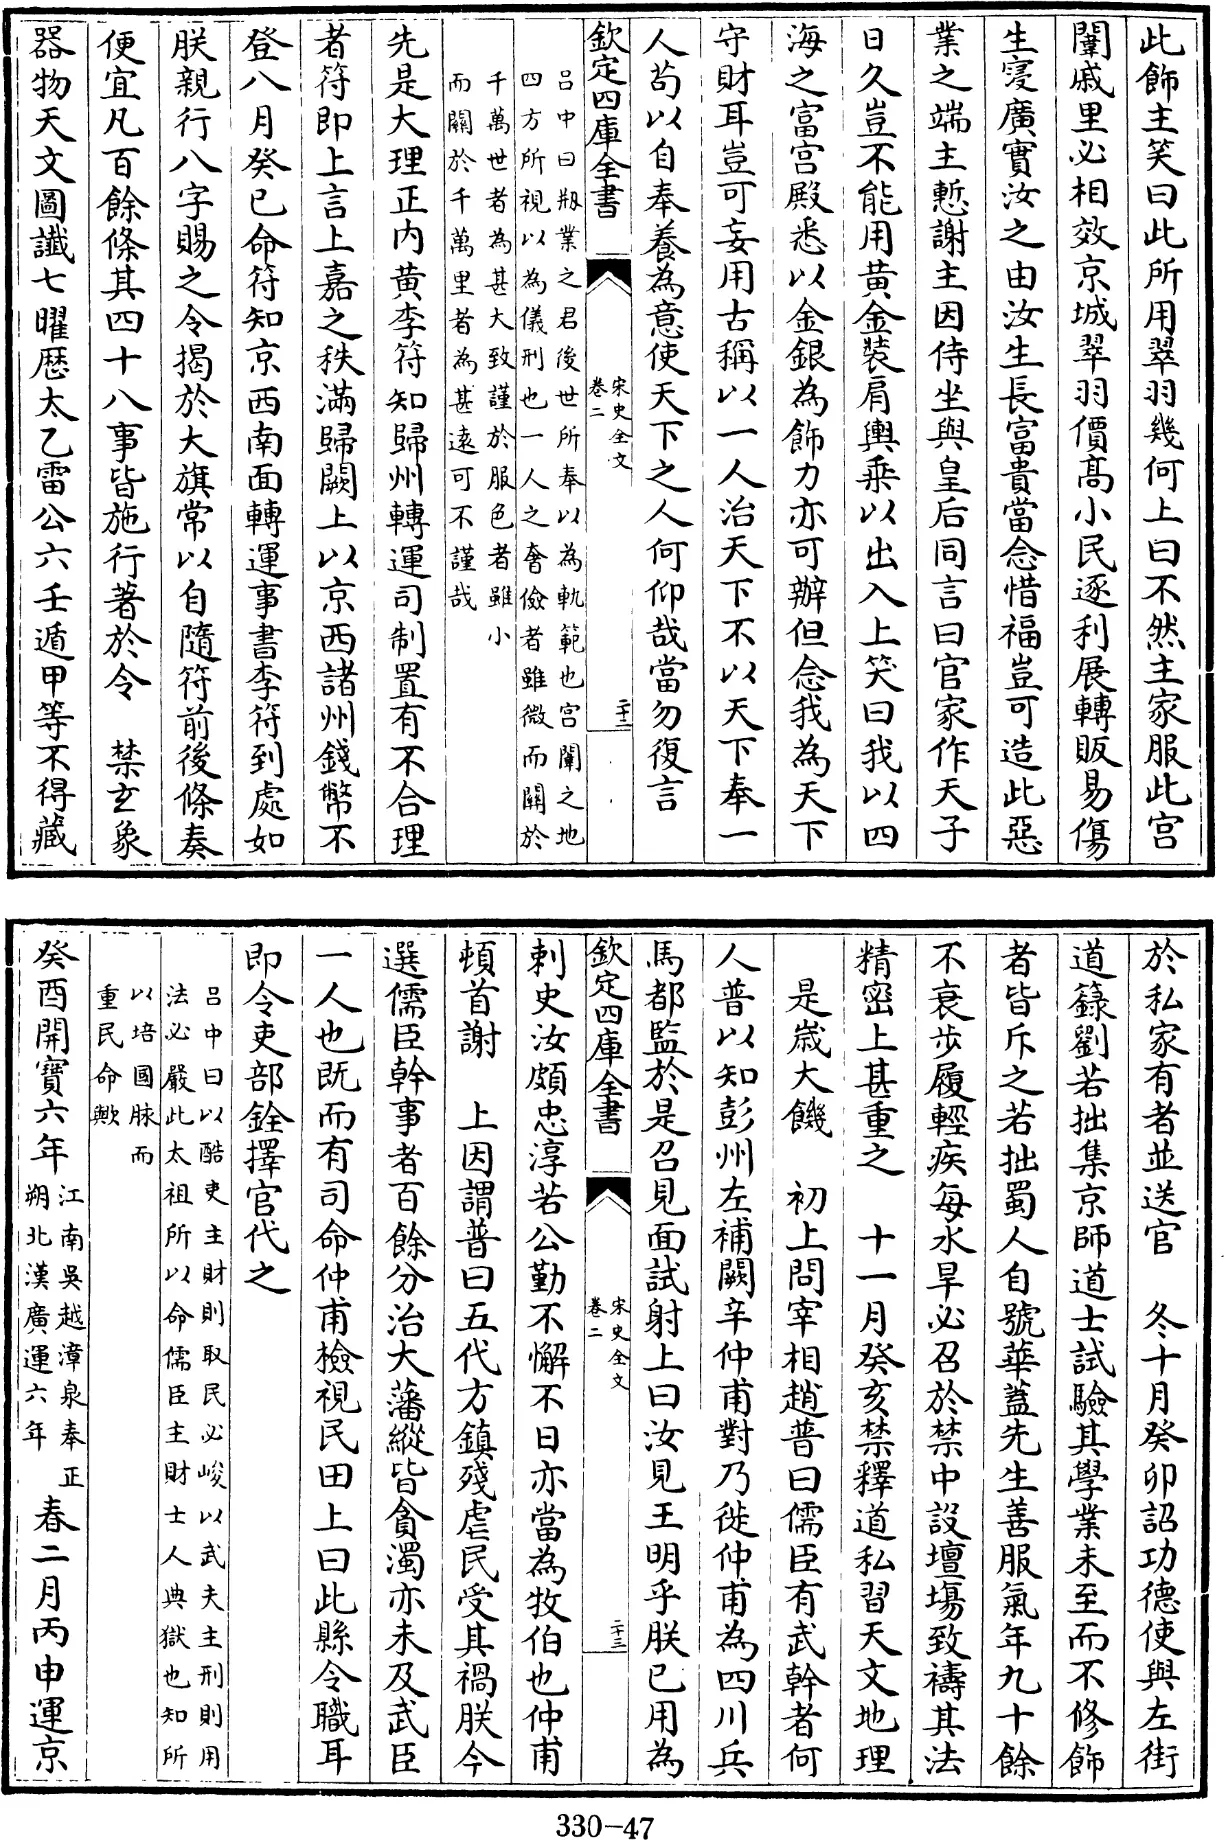 此飾主笑曰此所用翠羽幾何上曰不然主家服此宫
闈戚里必相效京城翠羽價髙小民逐利展轉販易傷
生寖廣實汝之由汝生長富貴當念惜福豈可造此惡
業之端主慙謝主因侍坐與皇后同言曰官家作天子
日久豈不能用黄金裝肩輿乘以出入上笑曰我以四
海之富宫殿悉以金銀為飾力亦可辦但念我為天下
守財耳豈可妄用古稱以一人治天下不以天下奉一
人苟以自奉養為意使天下之人何仰哉當勿復言
欽定四庫全書
宋史全文
卷二
二十二
吕中曰剏業之君後世所奉以為軌範也宫闈之地
四方所視以為儀刑也一人之奢儉者雖微而關於
千萬世者為甚大致謹於服色者雖小
而關於千萬里者為甚逺可不謹哉
先是大理正内黄李符知歸州轉運司制置有不合理
者符即上言上嘉之秩滿歸闕上以京西諸州錢幣不
登八月癸巳命符知京西南面轉運事書李符到處如
朕親行八字賜之令揭於大旗常以自隨符前後條奏
便宜凡百餘條其四十八事皆施行著於令　禁玄象
器物天文圖讖七曜歴太乙雷公六壬遁甲等不得藏
於私家有者並送官　冬十月癸卯詔功德使與左街
道籙劉若拙集京師道士試驗其學業未至而不修飾
者皆斥之若拙蜀人自號華蓋先生善服氣年九十餘
不衰步履輕疾每水旱必召於禁中設壇塲致禱其法
精密上甚重之　十一月癸亥禁釋道私習天文地理
是嵗大饑　初上問宰相趙普曰儒臣有武幹者何
人普以知彭州左補闕辛仲甫對乃徙仲甫為四川兵
馬都監於是召見面試射上曰汝見王明乎朕已用為
欽定四庫全書
宋史全文
卷二
二十三
刺史汝頗忠淳若公勤不懈不日亦當為牧伯也仲甫
頓首謝　上因謂普曰五代方鎮殘虐民受其禍朕今
選儒臣幹事者百餘分治大藩縱皆貪濁亦未及武臣
一人也既而有司命仲甫檢視民田上曰此縣令職耳
即令吏部銓擇官代之
吕中曰以酷吏主財則取民必峻以武夫主刑則用
法必嚴此太祖所以命儒臣主財士人典獄也知所
以培國脉而
重民命歟
癸酉開寶六年江南吳越漳泉奉正
朔北漢廣運六年春二月丙申運京
330-47